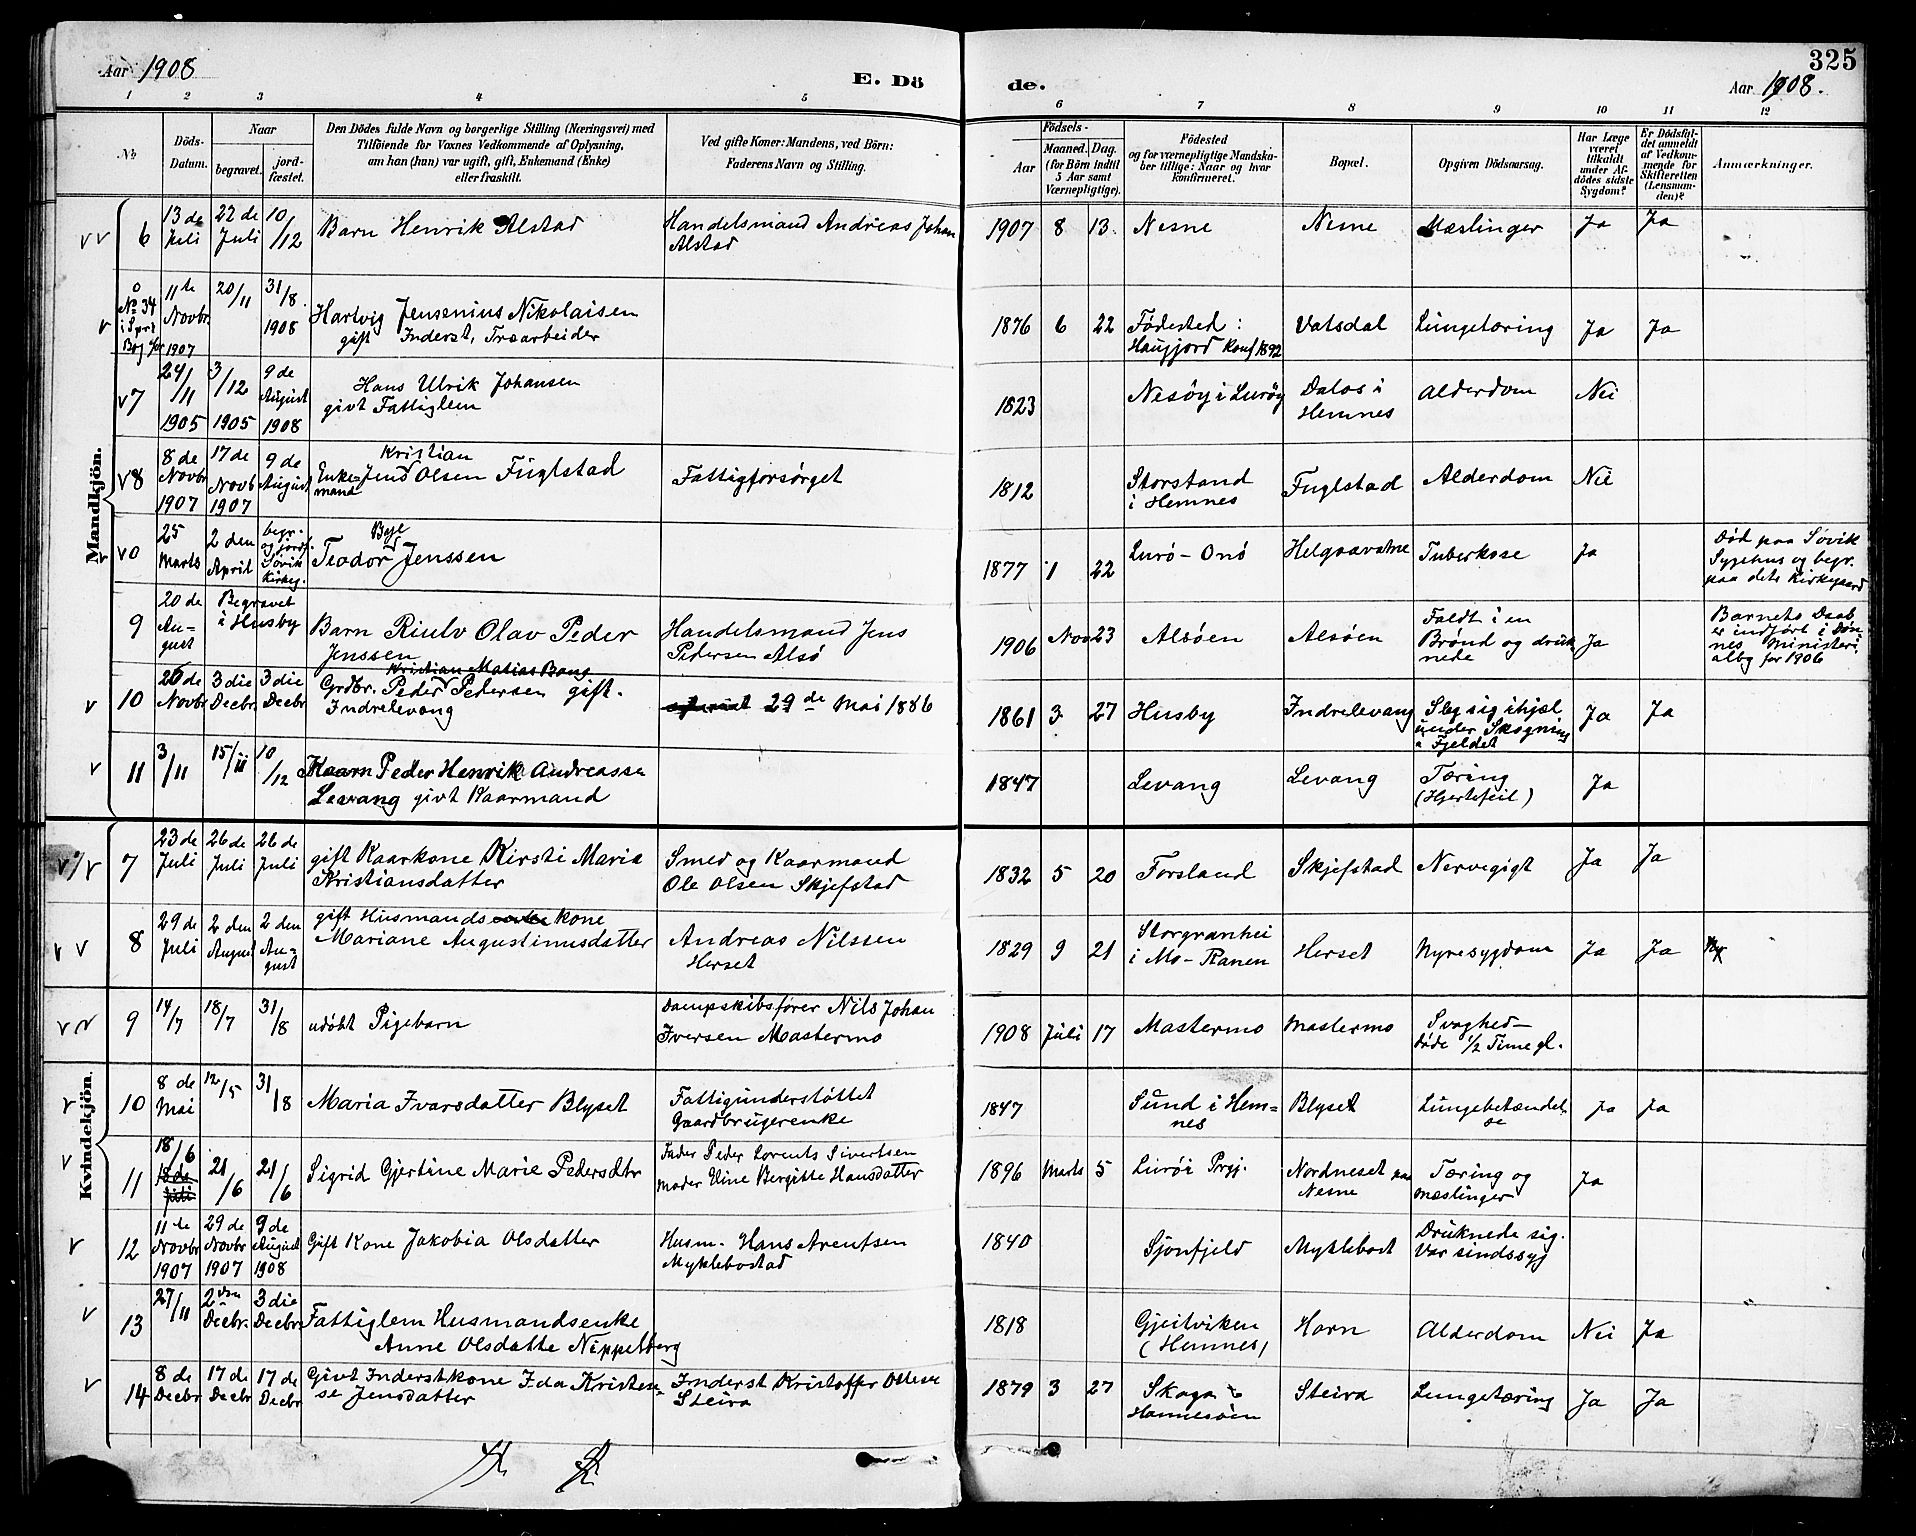 Aar 1908
E. Dö
de.
325
Aar 1908.
1 2 3 4 5 6 7 8 9 10 11 12
No
Döds-
Datum.
Naar
begravet.
jord-
fæstet.
Den Dödes fulde Navn og borgerlige Stilling (Næringsvei) med
Tilföiende for Voxnes Vedkommende af Oplysning,
om han (hun) var ugift, gift, Enkemand (Enke)
eller fraskilt.
Ved gifte Koner: Mandens, ved Börn:
Faderens Navn og Stilling.
Födsels-
Aar
Maaned. Dag.
(for Börn indtil
5 Aar samt
Værnepligtige).
Födested
og for værnepligtige Mandska-
ber tillige: Naar og hvor
konfirmeret.
Bopæl.
Opgiven Dödsaarsag.
Har Læge
været
tilkaldt
under Af-
dödes sidste
Sygdom?
Er Dödsfal-
det anmeldt
af Vedkom-
mende for
Skifteretten
(Lensman-
den)?
Anmærkninger.
Mandkjön.
6
13 de
Juli
22 de
Juli
10/12
Barn Henrik Alstad
Handelsmand Andreas Johan
Alstad
1907 8 13. Nesne Nesne Mæslinger Ja Ja
No 34
i Spr.
Bog for
11te
Novbr.
1907
20/11
31/8
1908
Hartvig Jensenius Nikolaisen
gift Inderst, Træarbeider
1876 6 22 Fødested:
Haugjord Konf 1892
Vatsdal Lungetæring Ja Ja
7
24/11
1905
3/12
1905
9 de
August
1908
Hans Ulrik Johansen
givt Fattiglem
1823 Nesöy i Luröy
Dalos i
Hemnes
Alderdom Nei
8
8 de
Novbr
1907
17 de
Novb
1907
9 de
August
Kristian
Enke-
mand
Jens Olsen Fuglstad
Fattigforsørget
1812
Storstand
i Hemnes
Fuglstad Alderdom Nei
0
25
Marts
2 den
April
begr.
og jordf.
Søvik
Kirkeg.
Bye
Teodor Jenssen
1877 1 22 Lurö-Onö Helgaavatne Tuberkose Ja
Død paa Søvik
Sygehus og begr.
paa dets Kirkegaard
9
20 de
Au-
gust
Begravet
i Husby
Barn Riulv Olav Peder
Jenssen
Handelsmand Jens
Pedersen Alsö
1906 Nov 23 Alsöen Alsöen
Faldt i en
Brønd og druk
nede
Ja
Barnets Daab
er indført i Døn-
nes Ministeri
albg for 1906
10
26 de
Novbr
3 die
Decbr.
3 die
Decbr
Kristian Matias Bang
Grdbr. Peder Pedersen gift.
Indrelevang
29 de Mai 1886
1861 3 27 Husby Indrelevang
Sleg sig ihjæl
under Skogning
i Fjeldet
Ja Ja
11
3/11
15/11
10/12
Kaarm Peder Henrik Andreassen
Levang givt Kaarmand
1847 Levang Levang
Tæring
(Hjertefeil)
Ja
Kvindekjön.
7
23 de
Juli
26 de
Juli
26 de
Juli
gift Kaarkone Kirsti Maria
Kristiansdatter
Smed og Kaarmand
Ole Olsen Skjefstad
1832 5 20 Forsland Skjefstad Nervegigt Ja Ja
8
29 de
Juli
2 den
August
2 den
Au-
gust
gift Husmands kone
Mariane Augustinusdatter
Andreas Nilssen
Herset
1829 9 21
Storgranhei
i Mo-Ranen
Herset Nyresygdom Ja Ja
9
14/7
18/7
31/8
udöbt Pigebarn
Dampskibsfører Nils Johan
Iversen Mastermo
1908 Juli 17 Mastermo Mastermo
Svaghed-
døde 1/2 Time gl.
10
8 de
Mai
12/5
31/8
Maria Ivarsdatter Blyset
Fattigunderstøttet
Gaardbrugerenke
1847
Sund i Hem-
nes
Blyset
Lungebetændel
se
Ja Ja
11
18/6
18 de
juli
21/6
21/6
Sigrid Gjertine Marie Pedersdtr
Fader Peder Lorents Sivertsen
Moder Eline Bergitte Hansdatter
1896 Marts 5 Luröi Prgj.
Nordneset paa
Nesne
Tæring og
mæslinger
Ja
12
11te
Novbr
1907
29 de
Novbr
1907
9 de
August
1908
Gift Kone Jakobia Olsdatter
Husm. Hans Arentsen
Myklebostad
1840 Sjonfjeld Myklebost
Druknede sig.
Var sindssyg
13
27/11
2 den
Decbr.
3 die
Decbr.
Fattiglem Husmandsenke
Anne Olsdatte Nippetberg
1818
Gjeitviken
(Hemnes)
Horn Alderdom Nei Ja
14
8 de
Decbr
17 de
Decbr
17 de
Decbr
Givt Inderstkone Ida Kristen-
se Jensdatter
Inderst Kristoffer Olsen
Steira
1879 3 27
Skaga
Hannesöen
Steira Lungetæring Ja Ja